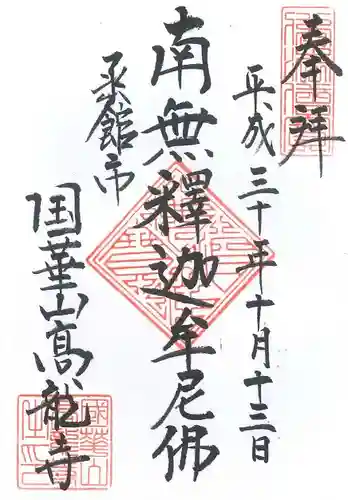 奉拝
平成三十年十月十三日
南無釋迦牟尼佛
函館市
国華山高龍寺